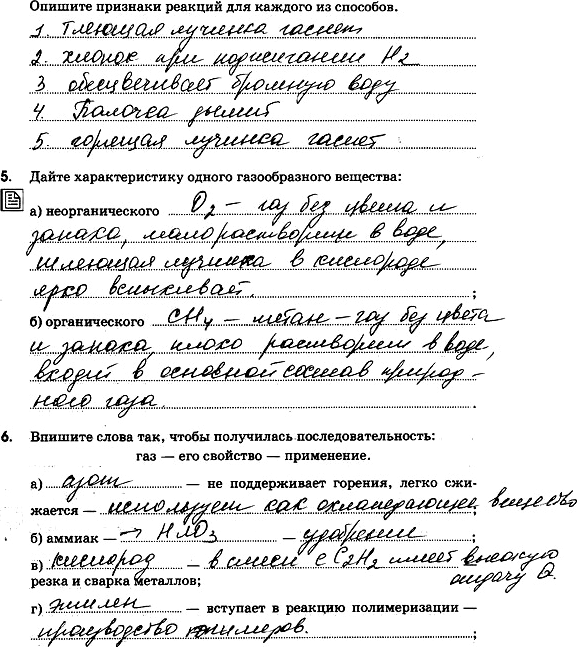 Опишите признаки реакций для каждого из способов.
1. Тлеющая лучинка гаснет
2. хлопок при поджигании H2
3 обесцвечивает бромную воду
4. Палочка дымит
5. горящая лучинка гаснет
5. Дайте характеристику одного газообразного вещества:
а) неорганического O2 – газ без цвета и
запаха, малорастворим в воде,
тлеющая лучинка в кислороде
ярко вспыхивает. ;
б) органического CH4 – метан – газ без цвета
и запаха, плохо растворим в воде,
входит в основной состав природ –
ного газа.
6. Впишите слова так, чтобы получилась последовательность:
газ — его свойство — применение.
а) азот — не поддерживает горения, легко сжи-
жается — используем как охлаждающее вещество ;
б) аммиак — → HNO3 — удобрении ;
в) кислород — в смеси с C2H2 имеет высокую
резка и сварка металлов; отдачу Q.
г) этилен — вступает в реакцию полимеризации —
производство полимеров. ;